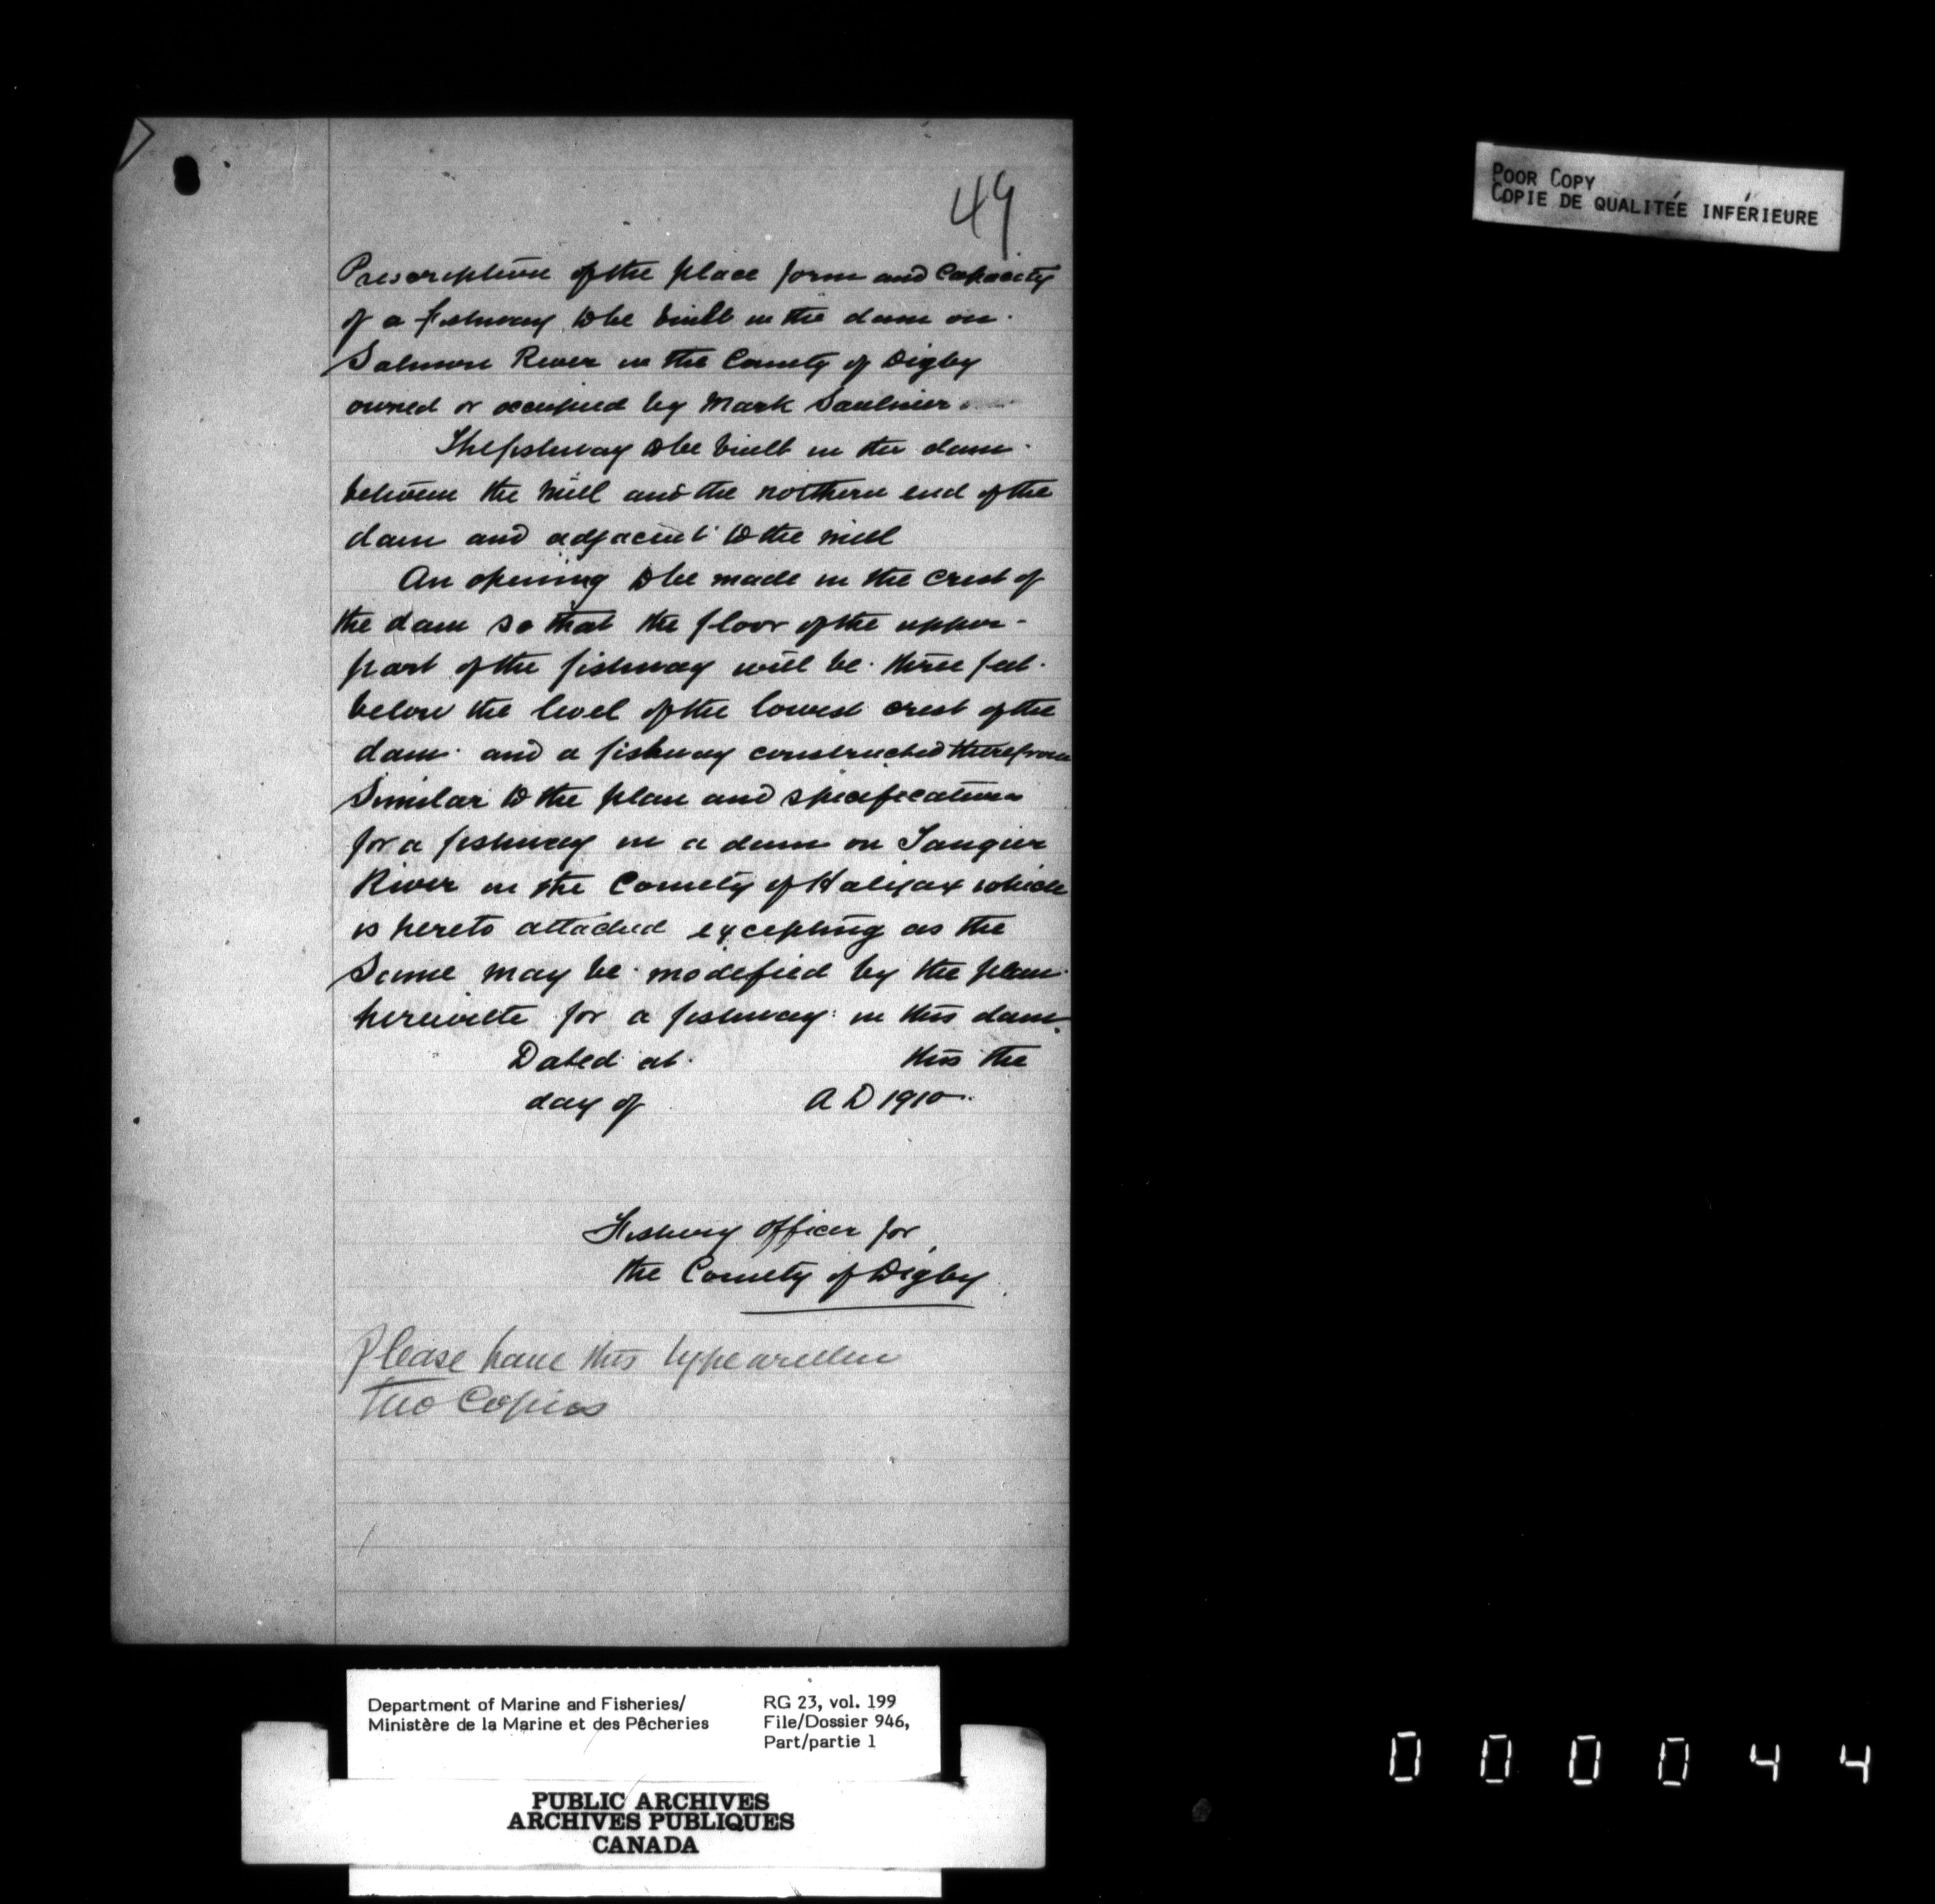 49
POOR COPY
COPIE DE QUALITÉE INFÉRIEURE
Prescription of the place form and Capacity
of a fishway to be built in the dam on
Salmon River in the County of Digby
owned or occupied by Mark Saulnier
The fishway to be built in the dam
between the mill and the northern end of the
dam and adjacent to the mill
An opening to be made in the crest of
the dam so that the floor of the upper
part of the fishway will be three feet
below the level of the lowest crest of the
dam and a fishway constructed therefrom
Similar to the plan and specifications
for a fishway in a dam on Tangier
River in the County of Halifax which
is hereto attached excepting as the
Same may be modified by the plan
herewith for a fishway in this dam.
Dated at this the
day of A D 1910
Fishery Officer for
the County of Digby
Please have this typewritten
Two Copies
Department of Marine and Fisheries/
Ministère de la Marine et des Pêcheries
RG 23, vol. 199
File/Dossier 946,
Part/partie 1
PUBLIC ARCHIVES
ARCHIVES PUBLIQUES
CANADA
000044